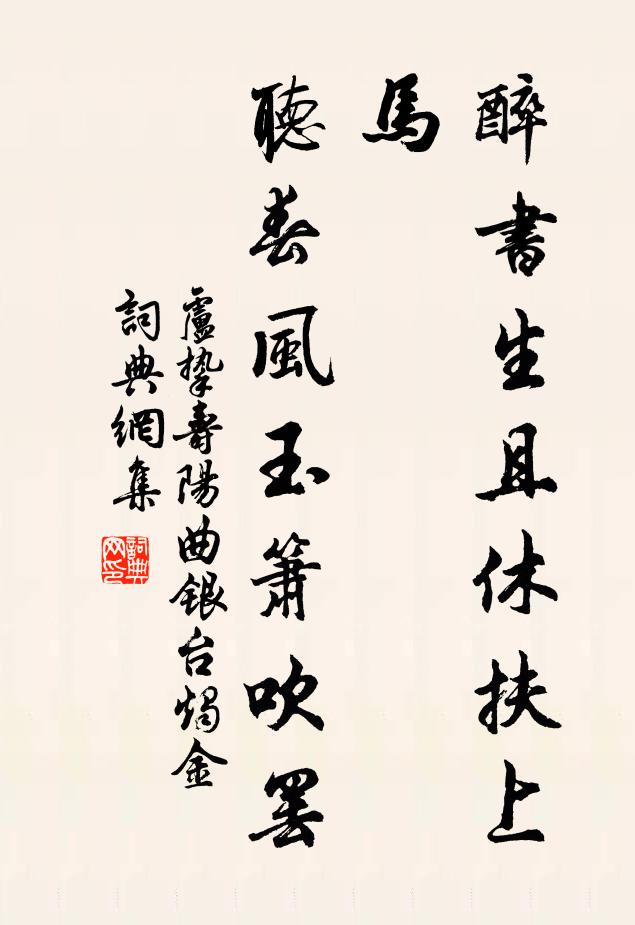 醉書生且休扶上
馬
聽春風玉簫吹罷
盧摯壽陽曲銀台燭金
詞典網集
詞典
网印